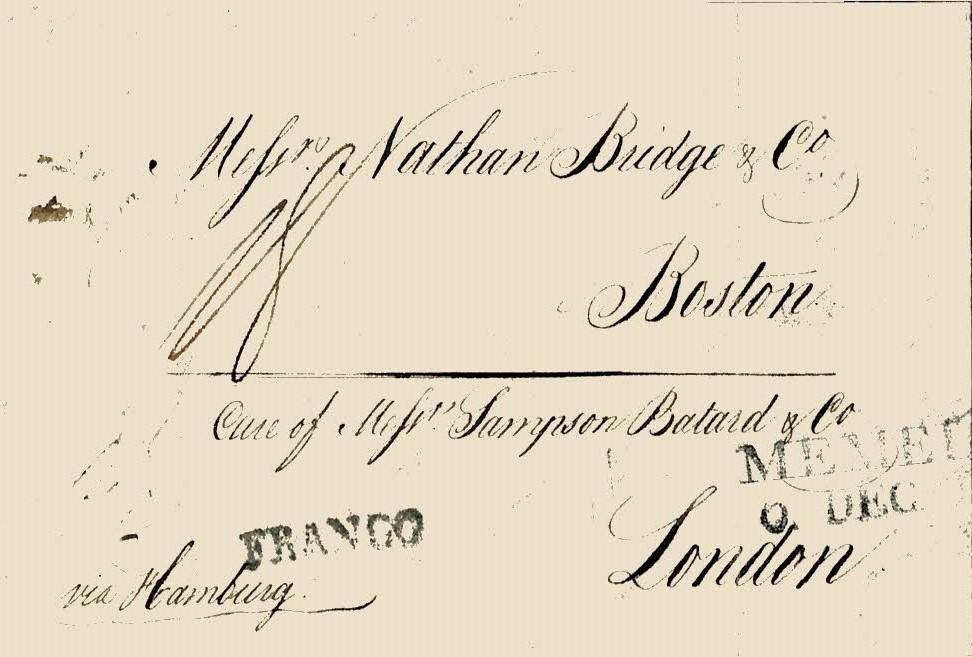 Messrs. Nathan Bridge & Co
Boston
Care of Messrs Sampson Batard & Co
MEMEL
9. DEC
London
FRANCO
via Hamburg.